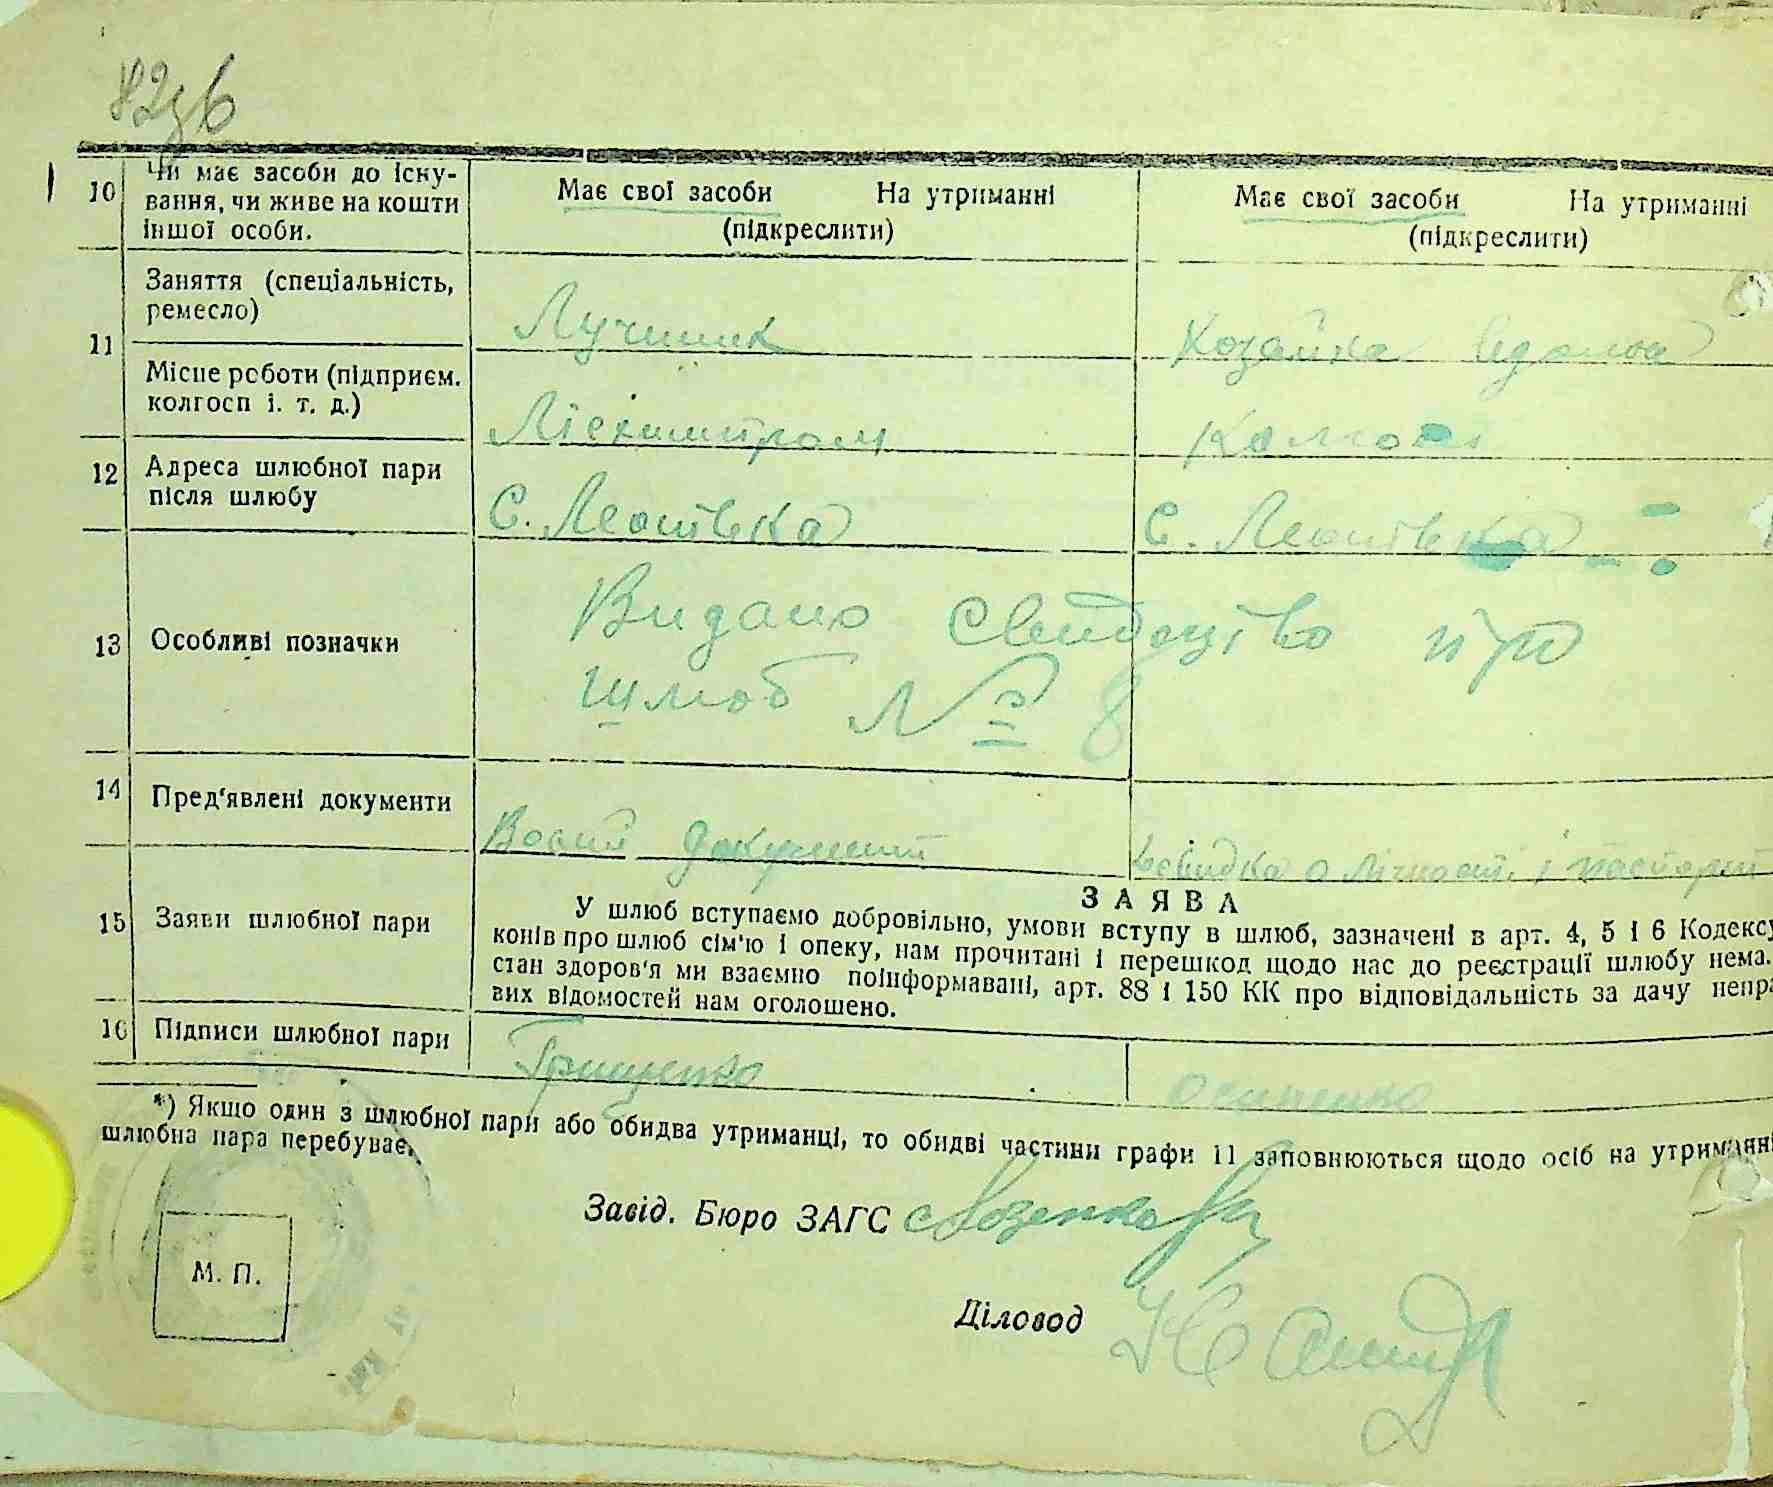 82зв
10 Чи має засоби до існу-
вання, чи живе на кошти
іншої особи.
Має свої засоби На утриманні
(підкреслити)
Має свої засоби На утриманні
(підкреслити)
11
Заняття (спеціальність,
ремесло)
Лучшик
Хозяйка
Місце роботи (підприєм.
колгосп і. т. д.)
12 Адреса шлюбної пари
після шлюбу
С. Леонівка
С. Леонівка
13 Особливі позначки
Видано свидоцтво про
шлюб № 8
14 Пред'явлені документи
документ
о лічності і паспорт
15 Заяви шлюбної пари
ЗАЯВА
У шлюб вступаємо добровільно, умови вступу в шлюб, зазначені в арт. 4, 5 і 6 Кодексу
конів про шлюб сім'ю і опеку, нам прочитані і перешкод щодо нас до реєстрації шлюбу нема.
стан здоров'я ми взаємно поінформавані, арт. 88 і 150 КК про відповідальність за дачу непра
вих відомостей нам оголошено.
16 Підписи шлюбної пари
Грищенко
Осипенко
*) Якщо один з шлюбної пари або обидва утриманці, то обидві частини графи 11 заповнюються щодо осіб на утриманні
шлюбна пара перебуває.
Завід. Бюро ЗАГС
М. П.
Діловод